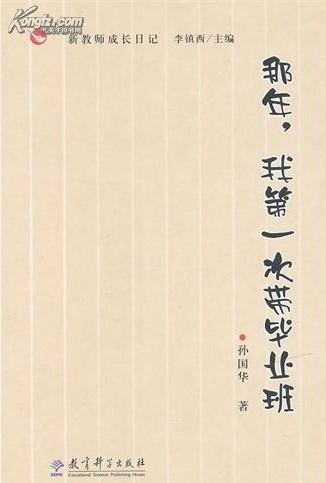 Kongfz.com
孔夫子旧书网
新教师成长日记 李镇西/主编
那年，我第一次带毕业班
孙国华 著
ESPH
教育科学出版社
Educational Science Publishing House